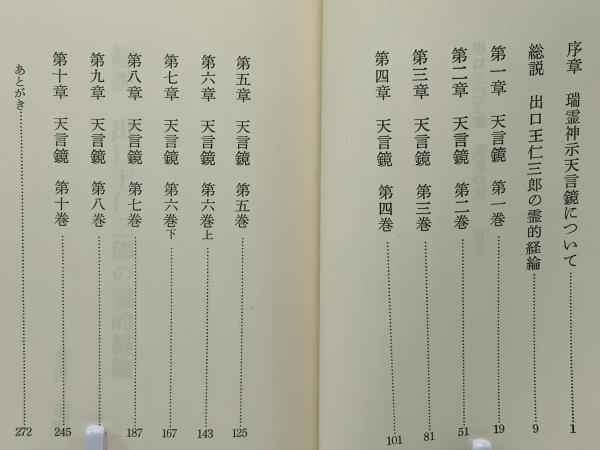 序章　瑞霊神示天言鏡について……………1
総説　出口王仁三郎の霊的経綸……………9
第一章　天言鏡　第一巻……………19
第二章　天言鏡　第二巻……………51
第三章　天言鏡　第三巻……………81
第四章　天言鏡　第四巻……………101
第五章　天言鏡　第五巻……………125
第六章　天言鏡　第六巻上……………143
第七章　天言鏡　第六巻下……………167
第八章　天言鏡　第七巻……………187
第九章　天言鏡　第八巻
第十章　天言鏡　第十巻……………245
あとがき……………272